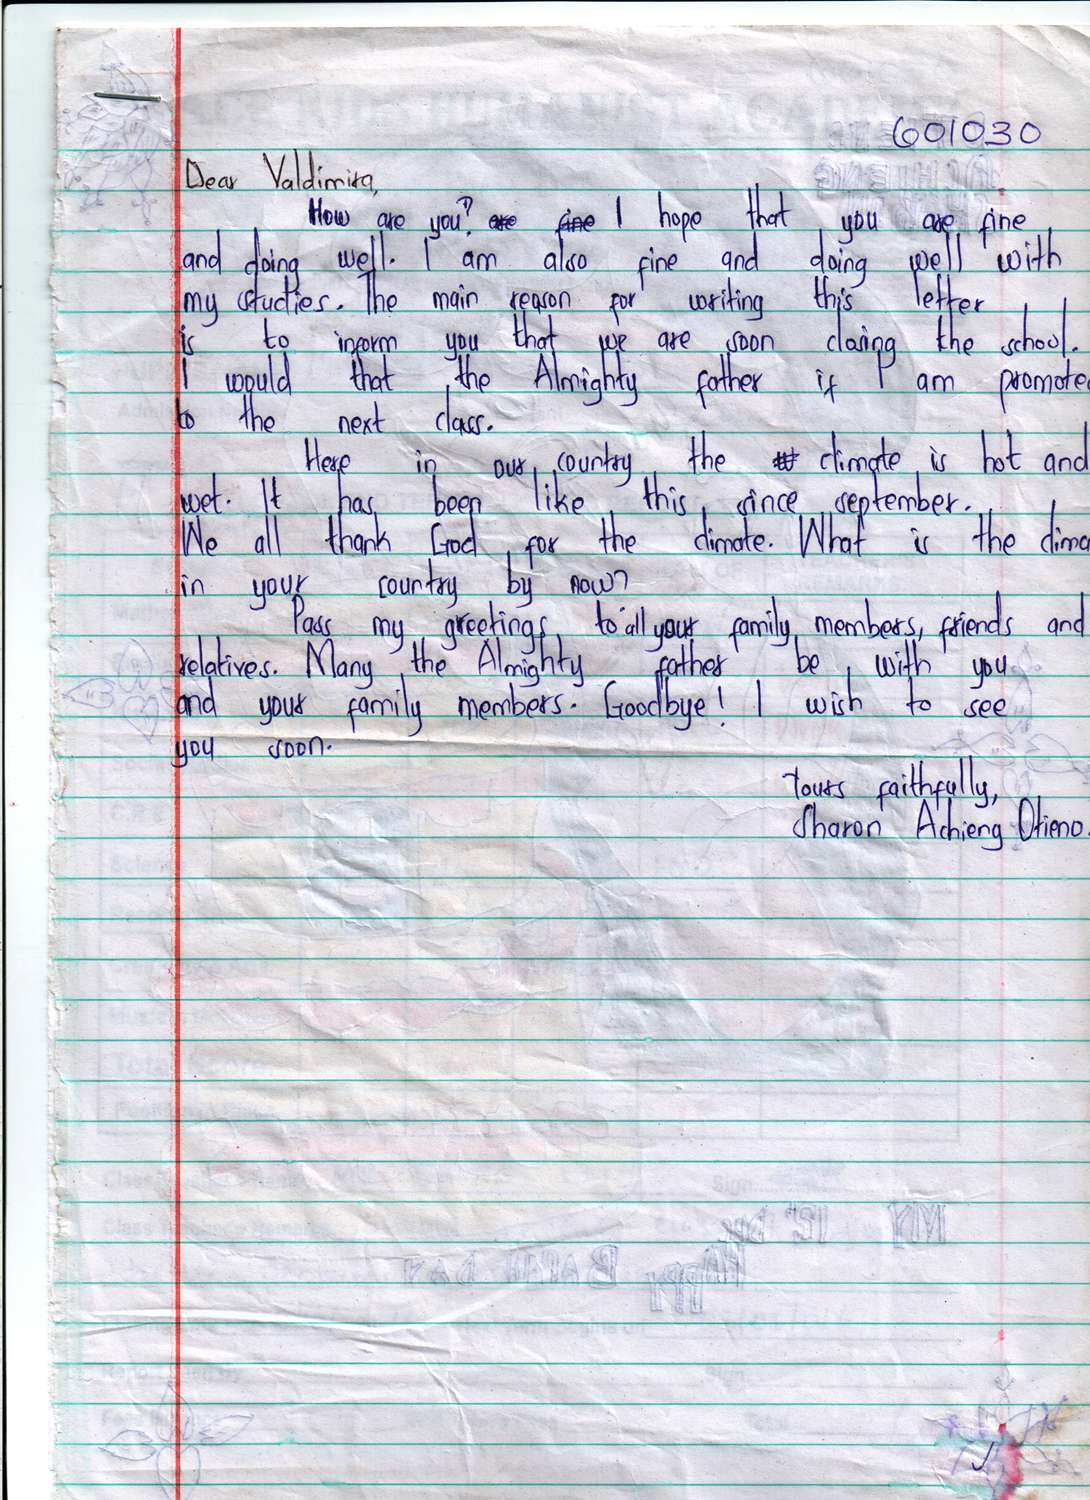 601030
Dear Valdimira,
How are you? are fine I hope that you are fine
and doing well. I am also fine and doing well with
my studies. The main reason for writing this letter
is to inform you that we are soon closing the school.
I would that the Almighty father if I am promote
to the next class.
Here in our country the climate is hot and
wet. It has been like this since september.
We all thank God for the climate. What is the clima
in your country by now?
Pass my greetings to all your family members, friends and
relatives. Many the Almighty father be with you
and your family members. Goodbye! I wish to see
you soon.
Yours faithfully,
Sharon Achieng Otieno.